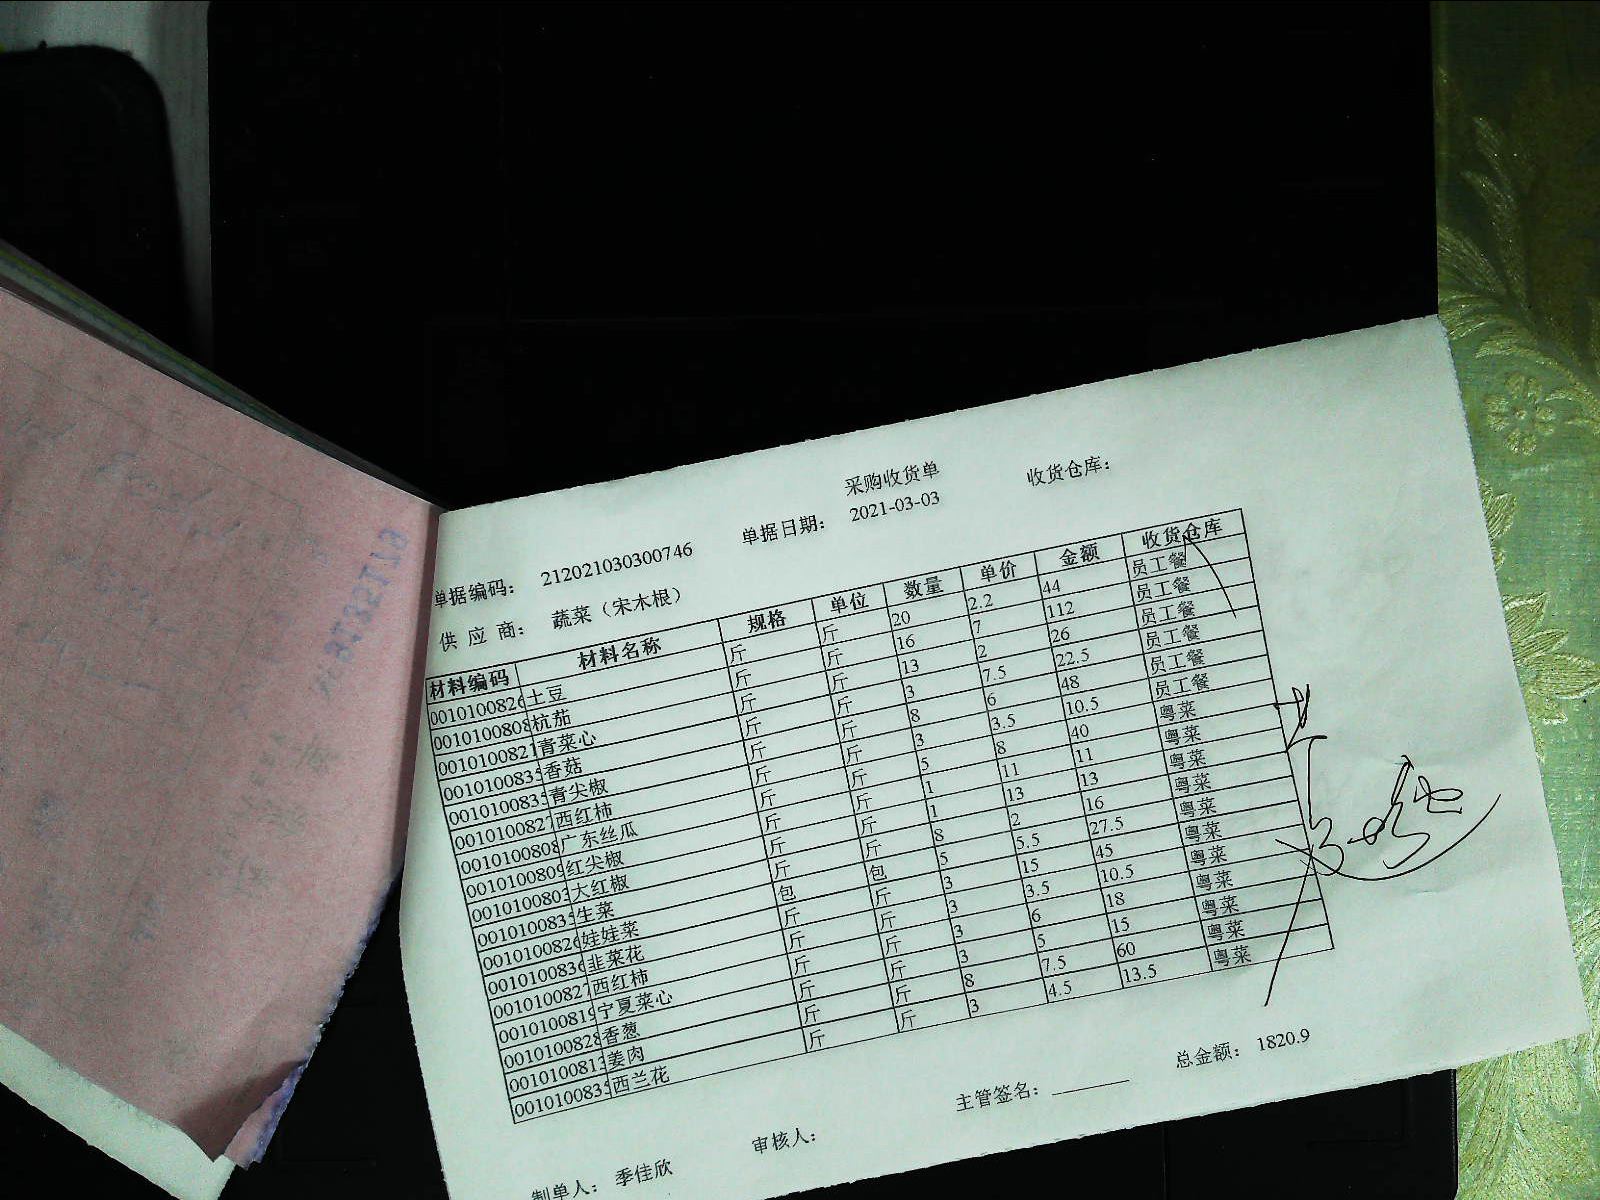 采购收货单
收货仓库：
单据编码： 212021030300746 单据日期： 2021-03-03
供 应 商： 蔬菜（宋木根）
材料编码 材料名称 规格 单位 数量 单价 金额 收货仓库
0010100826 土豆 斤 斤 20 2.2 44 员工餐
0010100808 杭茄 斤 斤 16 7 112 员工餐
0010100821 青菜心 斤 斤 13 2 26 员工餐
001010083 香菇 斤 斤 3 7.5 22.5 员工餐
001010083 青尖椒 斤 斤 8 6 48 员工餐
001010082 西红柿 斤 斤 3 3.5 10.5 员工餐
0010100808 广东丝瓜 斤 斤 5 8 40 粤菜
0010100809 红尖椒 斤 斤 1 11 11 粤菜
001010080 大红椒 斤 斤 1 13 13 粤菜
001010083 生菜 斤 斤 8 2 16 粤菜
0010100826 娃娃菜 包 包 5 5.5 27.5 粤菜
0010100836 韭菜花 斤 斤 3 15 45 粤菜
001010082 西红柿 斤 斤 3 3.5 10.5 粤菜
0010100819 宁夏菜心 斤 斤 3 6 18 粤菜
0010100828 香葱 斤 斤 3 5 15 粤菜
001010081 姜肉 斤 斤 8 7.5 60 粤菜
001010083 西兰花 斤 斤 3 4.5 13.5 粤菜
总金额： 1820.9
制单人： 季佳欣 审核人： 主管签名：